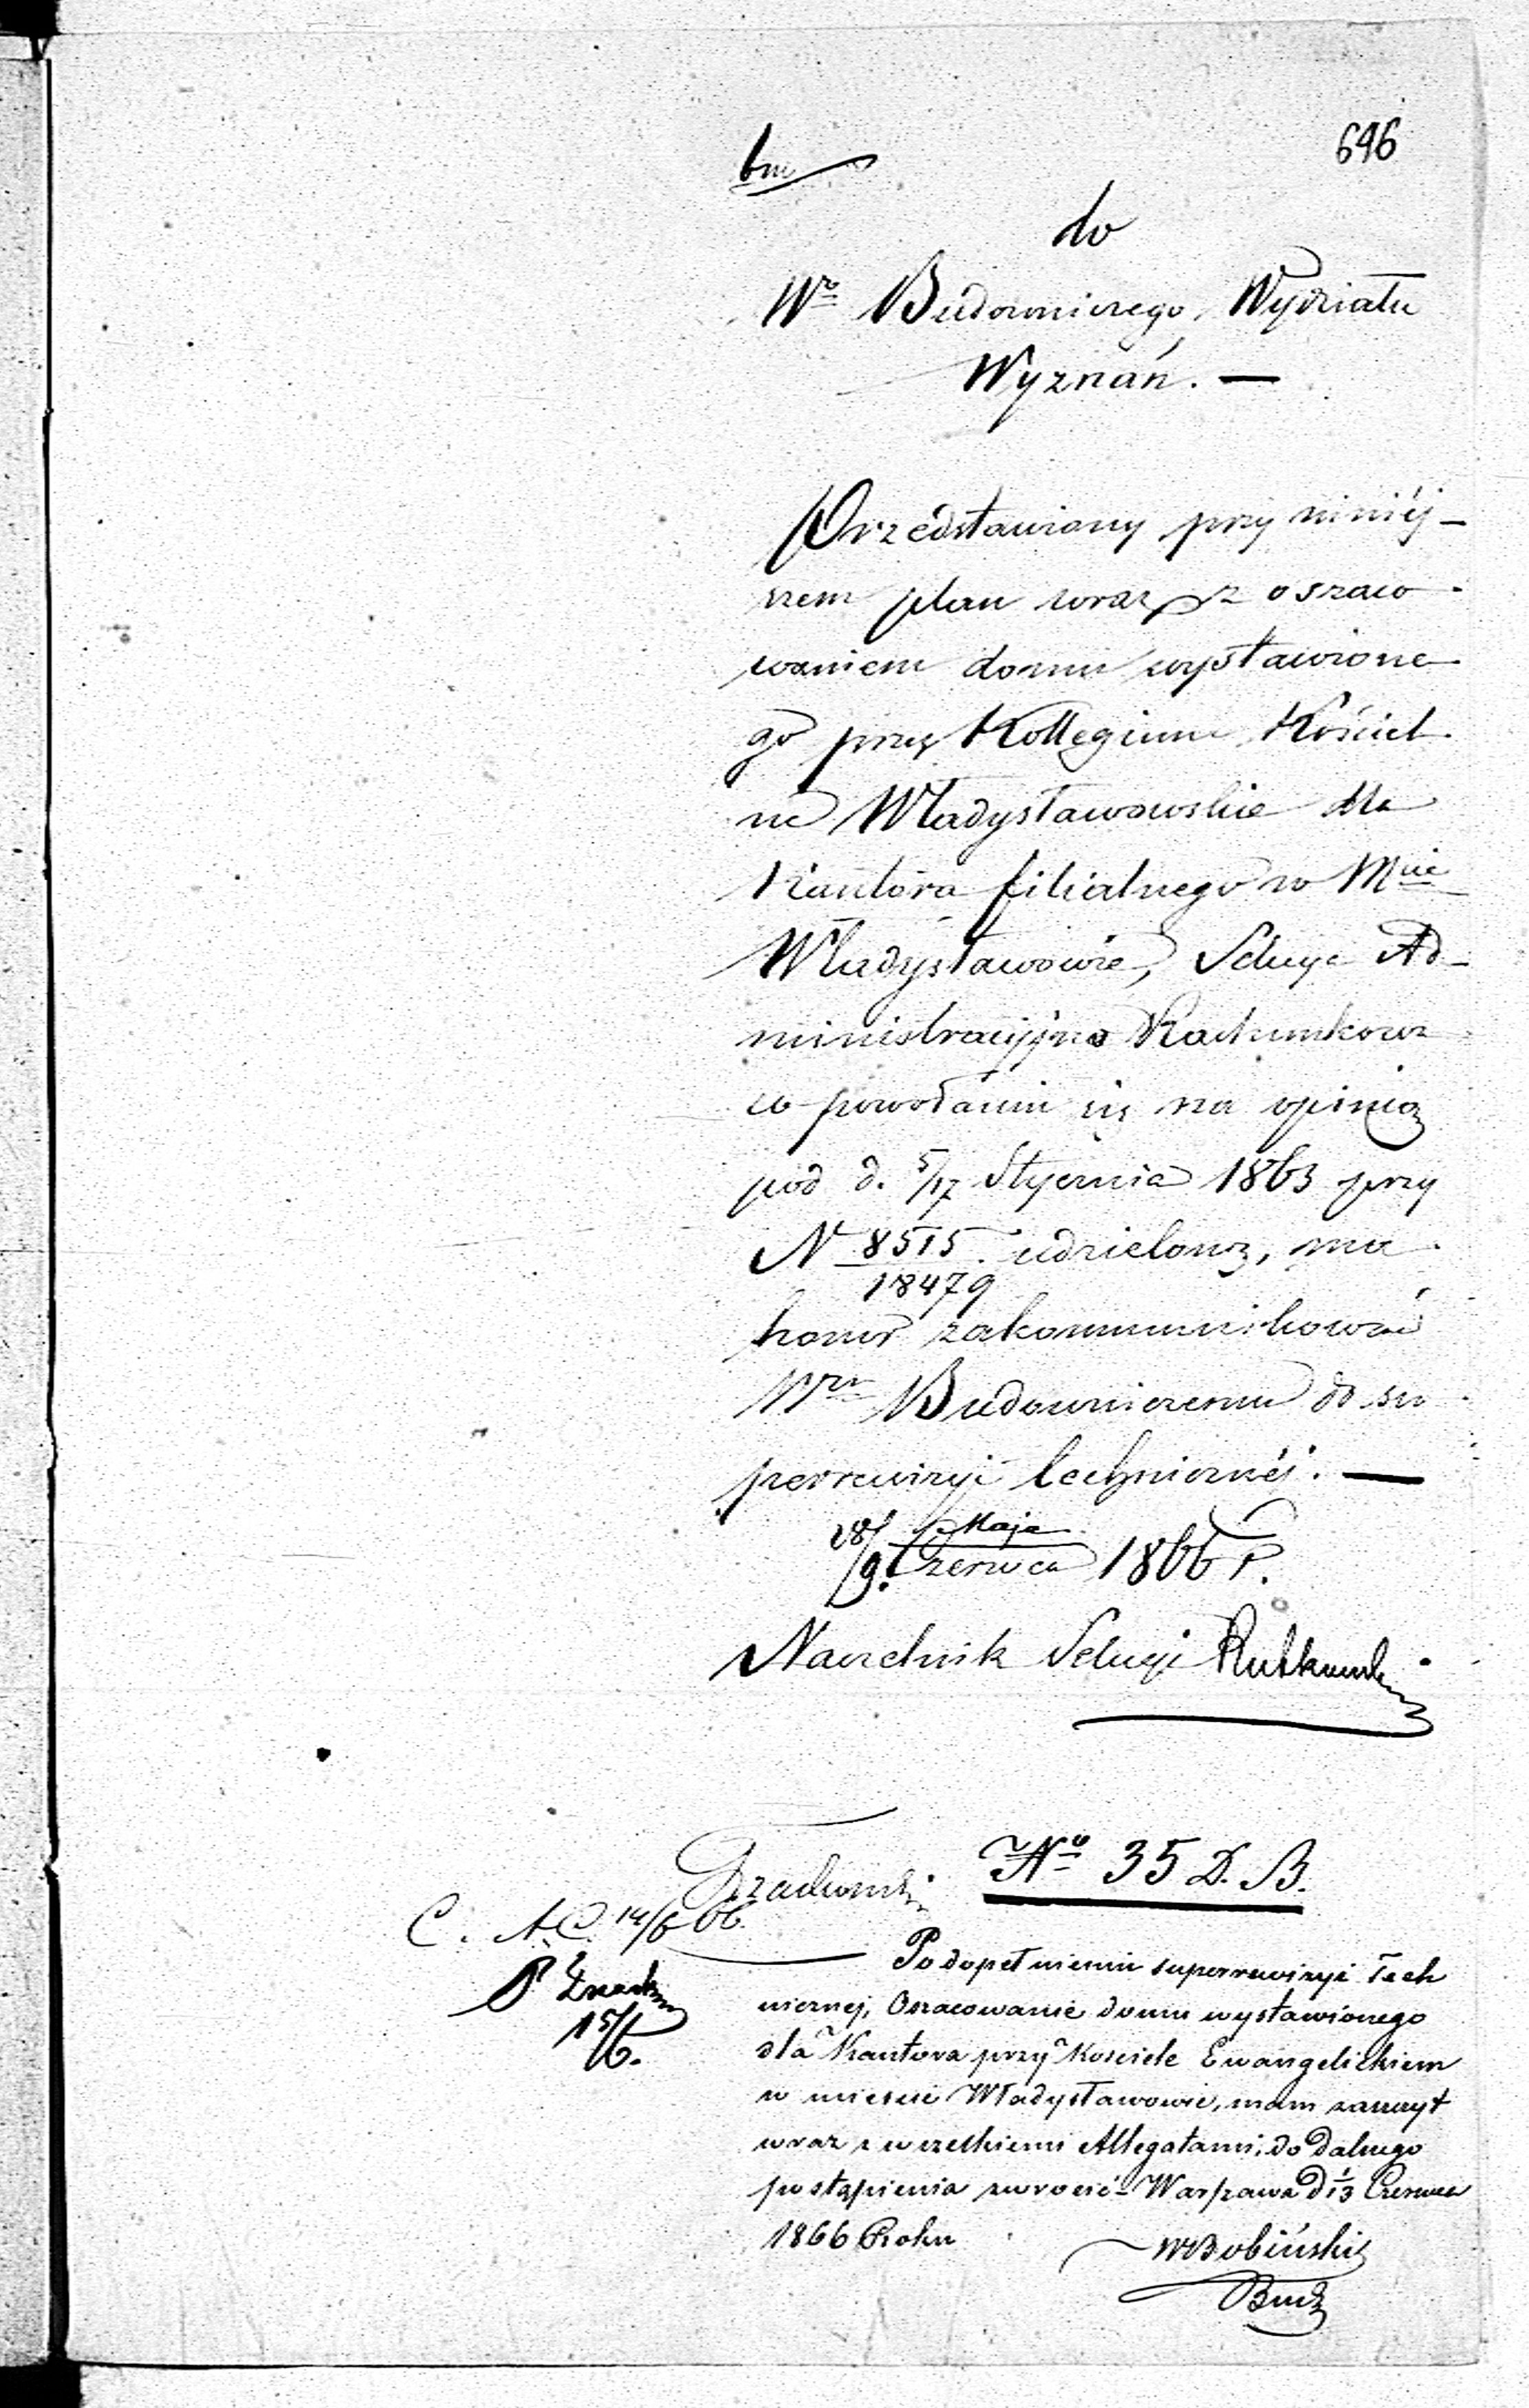 696
do
Wº Budowniczego Wydziału
Wyznań. —
Przedstawiony przy niniéj-
szem plan wraz z oszaco-
waniem domu wystawione-
go przez Kollegium Kościel-
ne Władysławowskie dla
Kantora filialnego w Mcie
Władysławowie, Sekcya Ad-
ministracyjno Rachunkowa
w powołaniu się na opinią
pod d. 5/17 Stycznia 1863 przy
N 8515/18479 udzieloną, ma
honor zakommunikować
Budowniczemu do su-
perrewizyi technicznéj. —
28 Maja/9 Czerwca 1866 r.
Naczelnik Sekcyi Rutkowski
Nº 35 D. B.
C. A.C. 14/6 66.
15/6.
Po dopełnieniu superrewizyi Tech
nicznej, Oszacowanie domu wystawionego
dla Kantora przy Kosciele Ewangelickiem
w miescie Władysławowie, mam zaszczyt
wraz z wszelkiemi Allegatami, do dalszego
postąpienia zwrocić – Warszawa D 1/13 Czerwca
1866 Roku
WBobiński
Bud